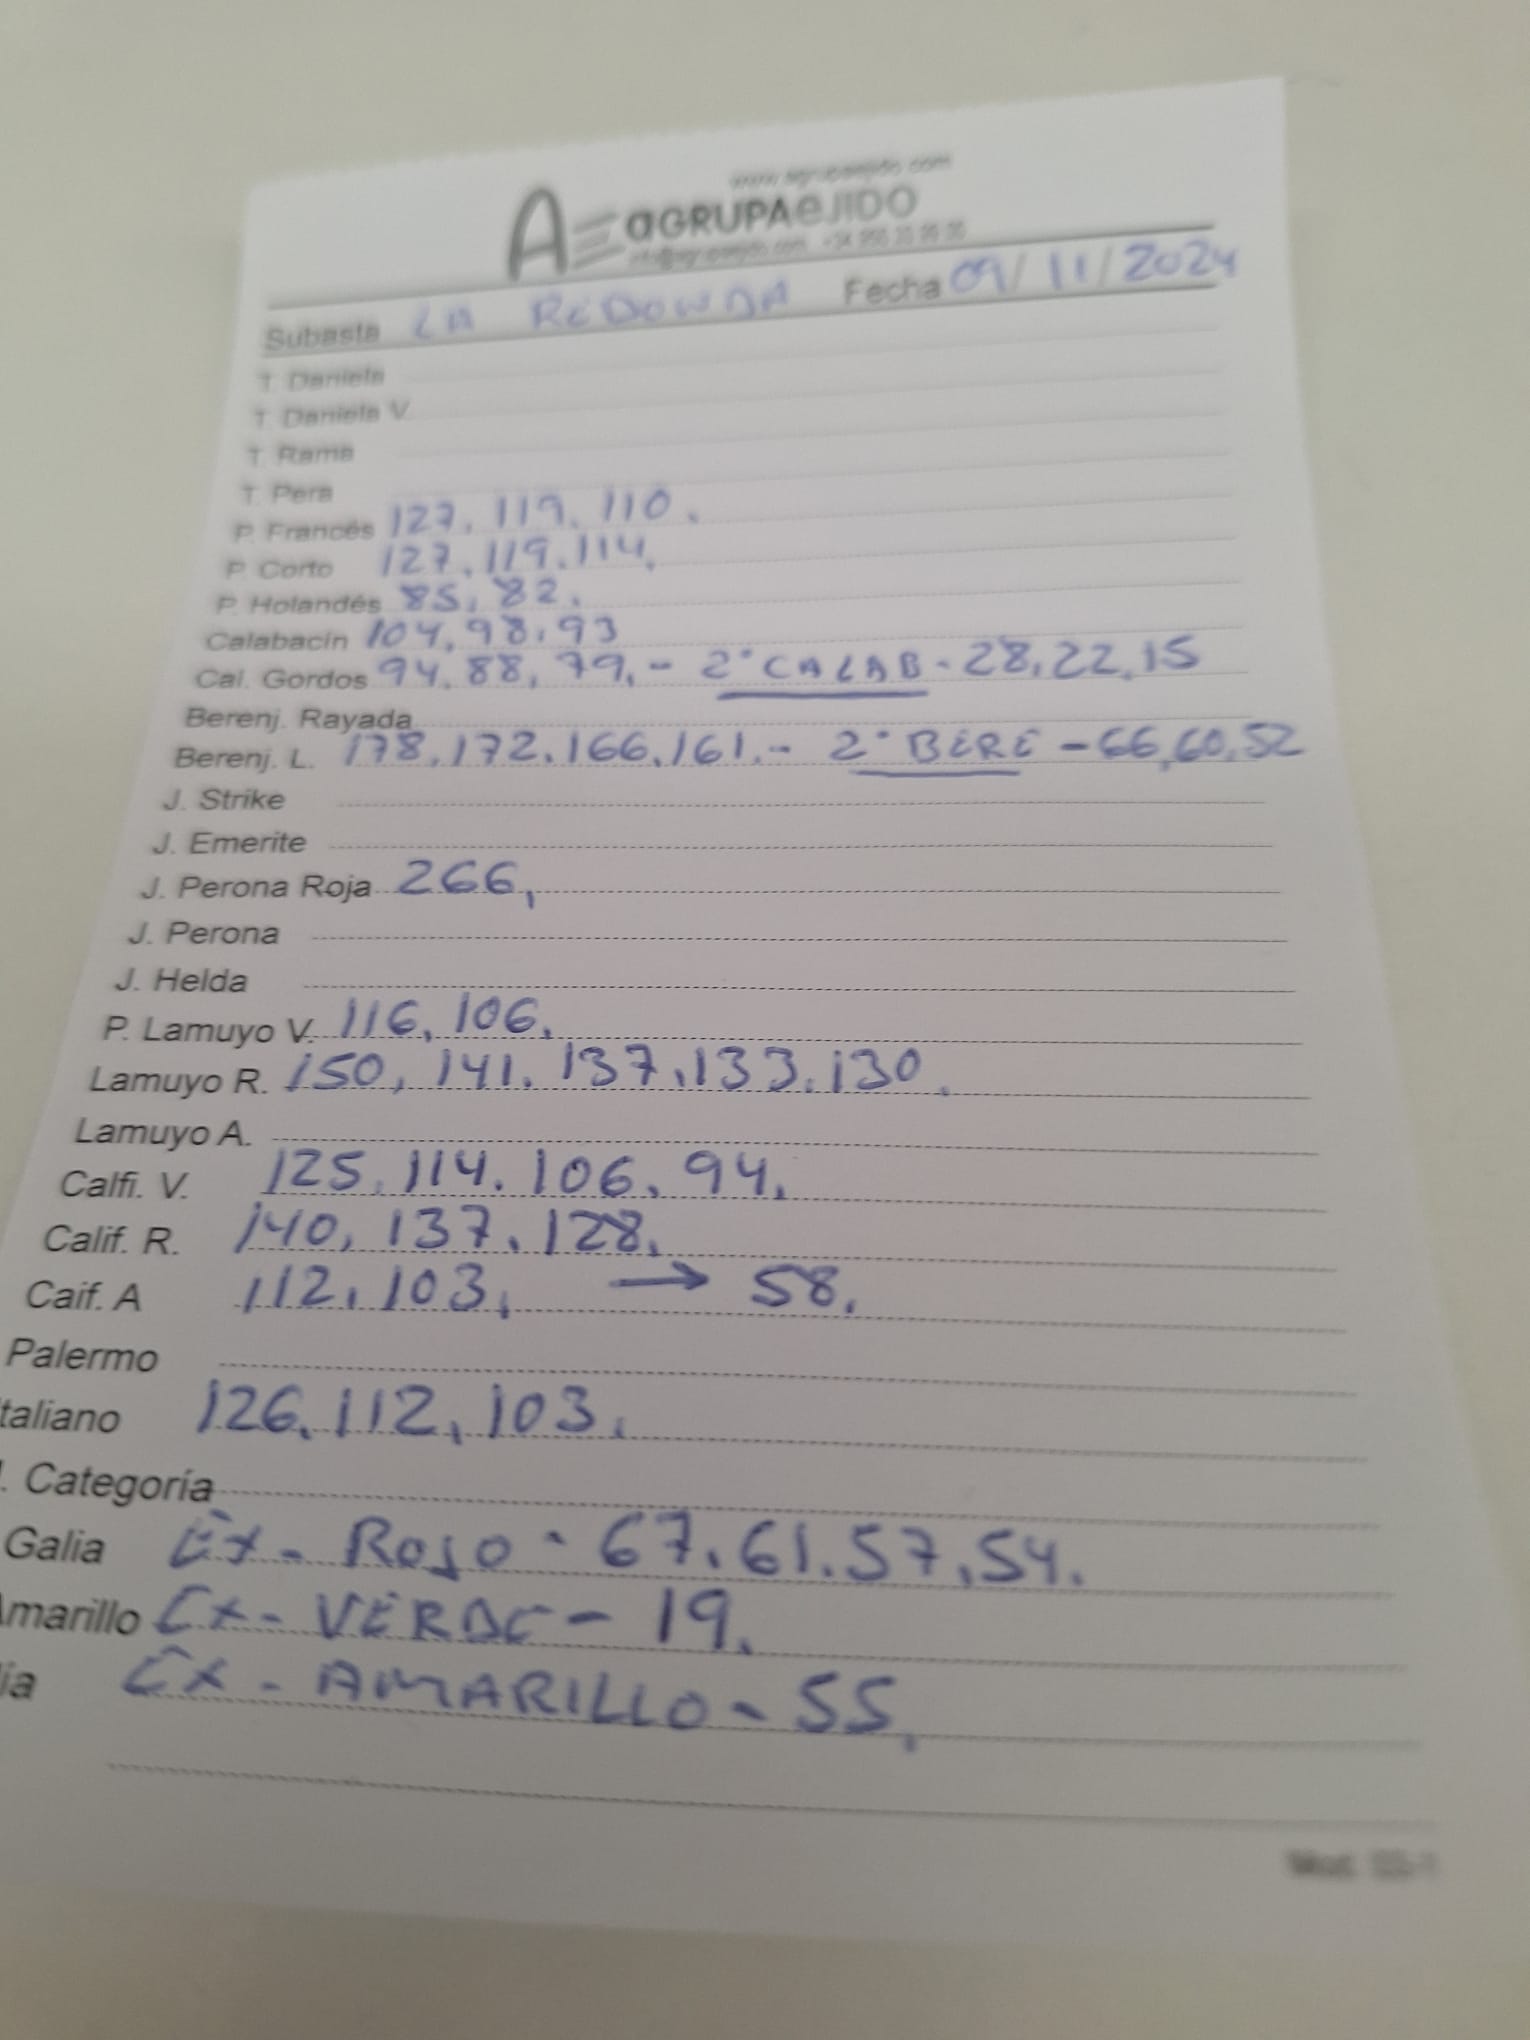 www.agrupaejido.com
AE aGRUPAeJIDO
info@agrupaejido.com
Subasta LA REDONDA Fecha 09/11/2024
T. Daniela
T. Daniela V.
T. Rama
T. Pera
P. Francés 127, 119, 110.
P. Corto 127, 119, 114.
P. Holandés 85, 82.
Calabacín 104, 98, 93
Cal. Gordos 94, 88, 79, - 2ª CALAB - 28, 22, 15
Berenj. Rayada
Berenj. L. 178, 172, 166, 161, - 2ª BERE - 66, 60, 52
J. Strike
J. Emerite
J. Perona Roja 266,
J. Perona
J. Helda
P. Lamuyo V. 116, 106,
Lamuyo R. 150, 141, 137, 133, 130,
Lamuyo A.
Calfi. V. 125, 114, 106, 94,
Calif. R. 140, 137, 128,
Caif. A 112, 103, → 58,
Palermo
taliano 126, 112, 103,
. Categoría
Galia EX - ROJO - 67, 61, 57, 54.
marillo EX - VERDE - 19.
ia EX - AMARILLO - 55.